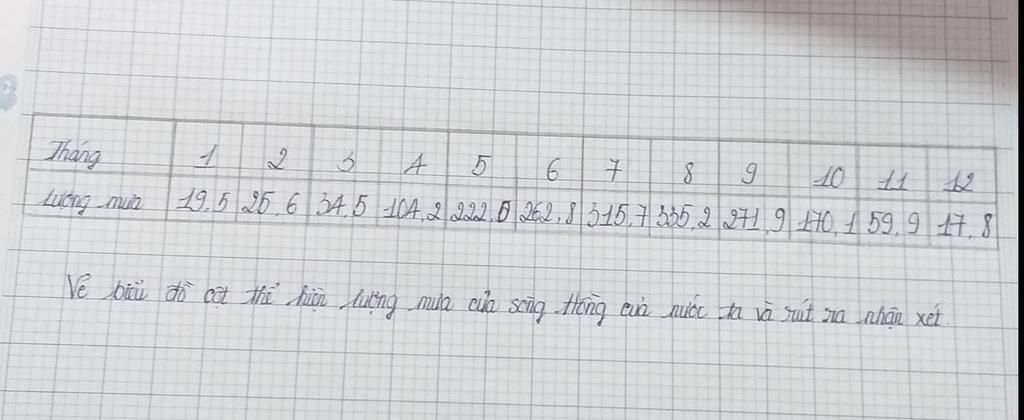 Tháng 1 2 3 4 5 6 7 8 9 10 11 12
Lượng mưa 19,5 25,6 34,5 104,2 222,0 262,8 315,7 335,2 271,9 170,1 59,9 17,8
Vẽ biểu đồ cột thể hiện lượng mưa của sông Hồng của nước ta và rút ra nhận xét.